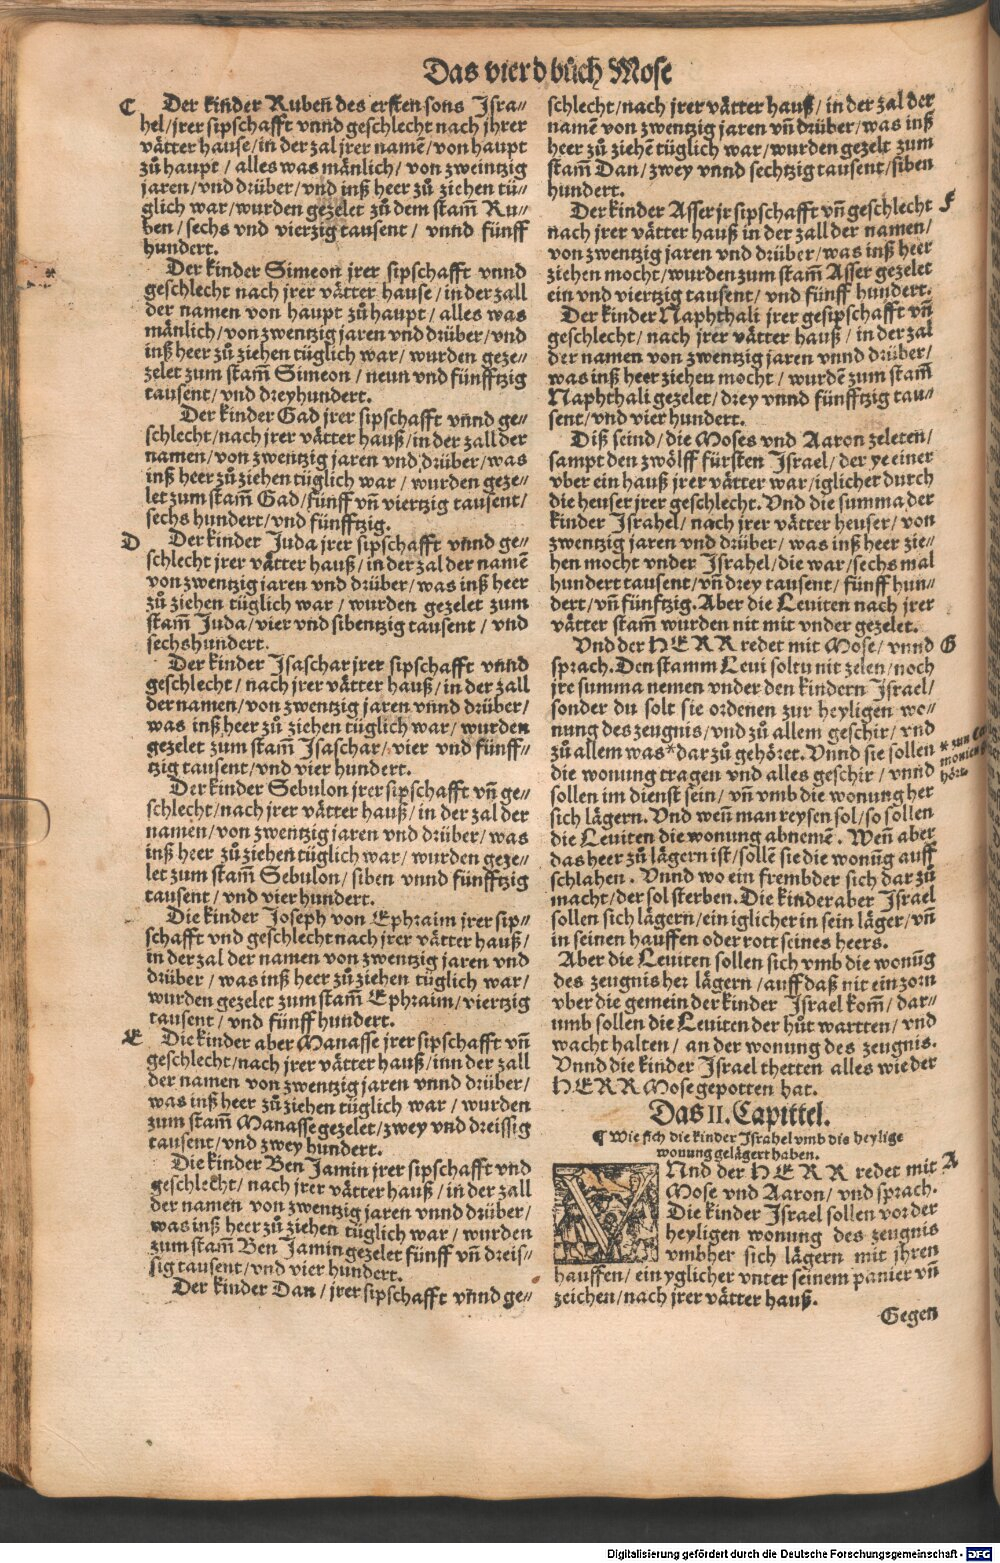 Das vierd bůch Mose
C Der kinder Rubeñ des ersten sons Isra⸗
hel/jrer sipschafft vnnd geschlecht nach jhrer
vätter hause/in der zal jrer namẽ/von haupt
zů haupt/alles was mänlich/von zweintzig
jaren/vnd drüber/vnd inß heer zů ziehen tü⸗
glich war/wurden gezelet zů dem stam̃ Ru⸗
ben/sechs vnd vierzig tausent/vnnd fünff
hundert.
Der kinder Simeon jrer sipschafft vnnd
geschlecht nach jrer vätter hause/in der zall
der namen von haupt zů haupt/alles was
mänlich/von zwentzig jaren vnd drüber/vnd
inß heer zů ziehen tüglich war/wurden geze⸗
zelet zum stam̃ Simeon/neun vnd fünfftzig
tausent/vnd dreyhundert.
Der kinder Gad jrer sipschafft vnnd ge⸗
schlecht/nach jrer vätter hauß/in der zall der
namen/von zwentzig jaren vnd drüber/was
inß heer zů ziehen tüglich war/wurden geze⸗
let zum stam̃ Gad/fünff vñ viertzig tausent/
sechs hundert/vnd fünfftzig.
D Der kinder Juda jrer sipschafft vnnd ge⸗
schlecht jrer vätter hauß/in der zal der namẽ
von zwentzig jaren vnd drüber/was inß heer
zů ziehen tüglich war/wurden gezelet zum
stam̃ Juda/vier vnd sibentzig tausent/vnd
sechshundert.
Der kinder Isaschar jrer sipschafft vnnd
geschlecht/nach jrer vätter hauß/in der zall
der namen/von zwentzig jaren vnnd drüber/
was inß heer zů ziehen tüglich war/wurden
gezelet zum stam̃ Isaschar/vier vnd fünff⸗
tzig tausent/vnd vier hundert.
Der kinder Sebulon jrer sipschafft vñ ge⸗
schlecht/nach jrer vätter hauß/in der zal der
namen/von zwentzig jaren vnd drüber/was
inß heer zů ziehen tüglich war/wurden geze⸗
let zum stam̃ Sebulon/siben vnnd fünfftzig
tausent/vnd vier hundert.
Die kinder Joseph von Ephraim jrer sip⸗
schafft vnd geschlecht nach jrer vätter hauß/
in der zal der namen von zwentzig jaren vnd
drüber/was inß heer zů ziehen tüglich war/
wurden gezelet zum stam̃ Ephraim/vierzig
tausent/vnd fünff hundert.
E Die kinder aber Manasse jrer sipschafft vñ
geschlecht/nach jrer vätter hauß/inn der zall
der namen von zwentzig jaren vnnd drüber/
was inß heer zů ziehen tüglich war/wurden
zum stam̃ Manasse gezelet/zwey vnd dreissig
tausent/vnd zwey hundert.
Die kinder Ben Jamin jrer sipschafft vnd
geschlecht/nach jrer vätter hauß/in der zall
der namen von zwentzig jaren vnnd drüber/
was inß heer zů ziehen tüglich war/wurden
zum stam̃ Ben Jamin gezelet fünff vñ dreis⸗
sig tausent/vnd vier hundert.
Der kinder Dan/jrer sipschafft vnnd ge⸗
schlecht/nach jrer vätter hauß/in der zal der
namẽ von zwentzig jaren vñ drüber/was inß
heer zů ziehẽ tüglich war/wurden gezelt zum
stam̃ Dan/zwey vnnd sechtzig tausent/siben
hundert.
Der kinder Asser jr sipschafft vñ geschlecht F
nach jrer vätter hauß in der zall der namen/
von zwentzig jaren vnd drüber/was inß heer
ziehen mocht/wurden zum stam̃ Asser gezelet
ein vnd viertzig tausent/vnd fünff hundert.
Der kinder Naphthali jrer gesipschafft vñ
geschlecht/nach jrer vätter hauß/in der zal
der namen von zwentzig jaren vnnd drüber/
was inß heer ziehen mocht/wurdẽ zum stam̃
Naphthali gezelet/drey vnnd fünfftzig tau⸗
sent/vnd vier hundert.
Diß seind/die Moses vnd Aaron zeleten/
sampt den zwölff fürsten Israel/der ye einer
vber ein hauß jrer vätter war/iglicher durch
die heuser jrer geschlecht. Vnd die summa der
kinder Israhel/nach jrer vätter heuser/von
zwentzig jaren vnd drüber/was inß heer zie⸗
hen mocht vnder Israhel/die war/sechs mal
hundert tausent/vñ drey tausent/fünff hun⸗
dert/vñ fünftzig. Aber die Leuiten nach jrer
vätter stam̃ wurden nit mit vnder gezelet.
Vnd der HERR redet mit Mose/vnnd G
sprach. Den stamm Leui soltu nit zelen/noch
jre summa nemen vnder den kindern Israel/
sonder du solt sie ordenen zur heyligen wo⸗
nung des zeugnis/vnd zů allem geschir/vnd
zů allem was*dar zů gehöret. Vnnd sie sollen
* zun
die wonung tragen vnd alles geschir/vnnd
sollen im dienst sein/vñ vmb die wonung her
sich lägern. Vnd weñ man reysen sol/so sollen
die Leuiten die wonung abnemẽ. Weñ aber
das heer zů lägern ist/sollẽ sie die wonũg auff
schlahen. Vnnd wo ein frembder sich dar zů
macht/der sol sterben. Die kinder aber Israel
sollen sich lägern/ein iglicher in sein läger/vñ
in seinen hauffen oder rott seines heers.
Aber die Leuiten sollen sich vmb die wonũg
des zeugnis her lägern/auff daß nit ein zorn
vber die gemein der kinder Israel kom̃/dar⸗
umb sollen die Leuiten der hůt wartten/vnd
wacht halten/an der wonung des zeugnis.
Vnnd die kinder Israel thetten alles wie der
HERR Mose gepotten hat.
Das II. Capittel.
¶ Wie sich die kinder Israhel vmb die heylige
wonung gelägert haben.
VNnd der HERR redet mit A
Mose vnd Aaron/vnd sprach.
Die kinder Israel sollen vor der
heyligen wonung des zeugnis
vmbher sich lägern mit jhren
hauffen/ein yglicher vnter seinem panier vñ
zeichen/nach jrer vätter hauß.
Gegen
Digitalisierung gefördert durch die Deutsche Forschungsgemeinschaft - DFG